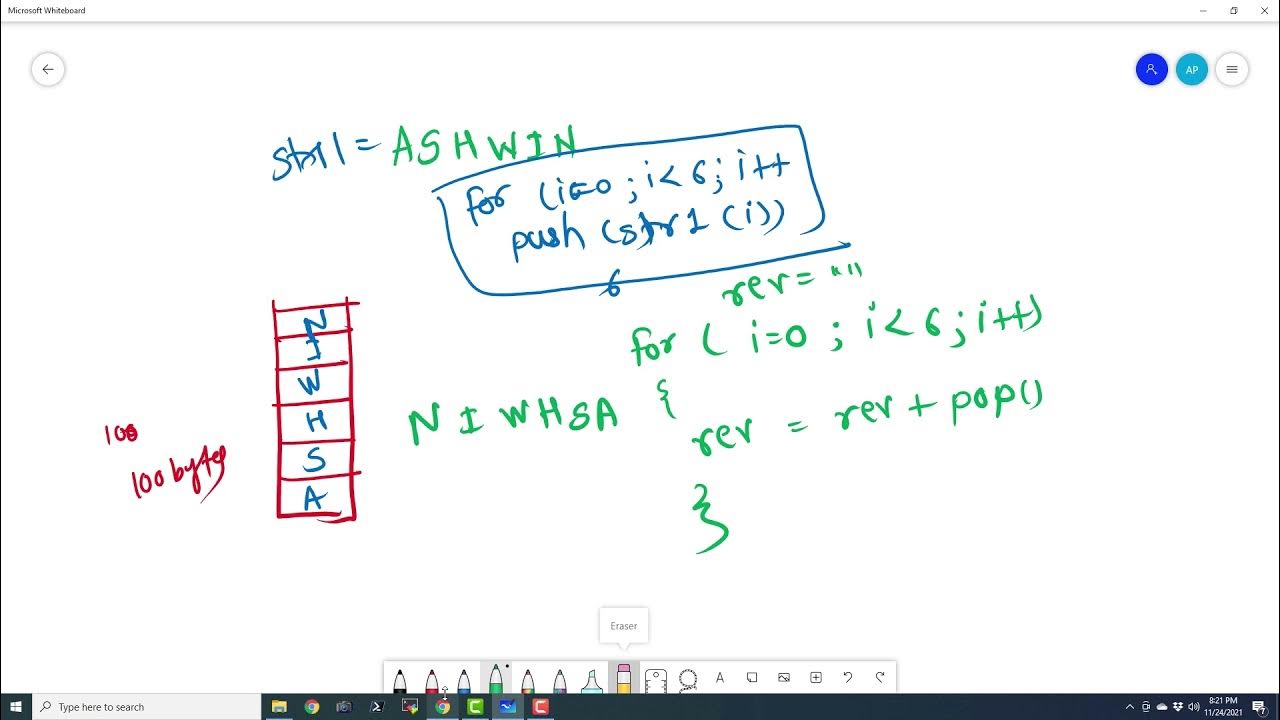 Microsoft Whiteboard
AP
str1 = ASHWIN
for (i=0 ; i<6; i++
push (str1 (i))
6
rev= ""
for ( i=0 ; i<6 ; i++)
{
rev = rev + pop()
}
N
I
W
H
S
A
NIWHSA
100
100 bytes
Eraser
A
Type here to search
8:21 PM
11/24/2021